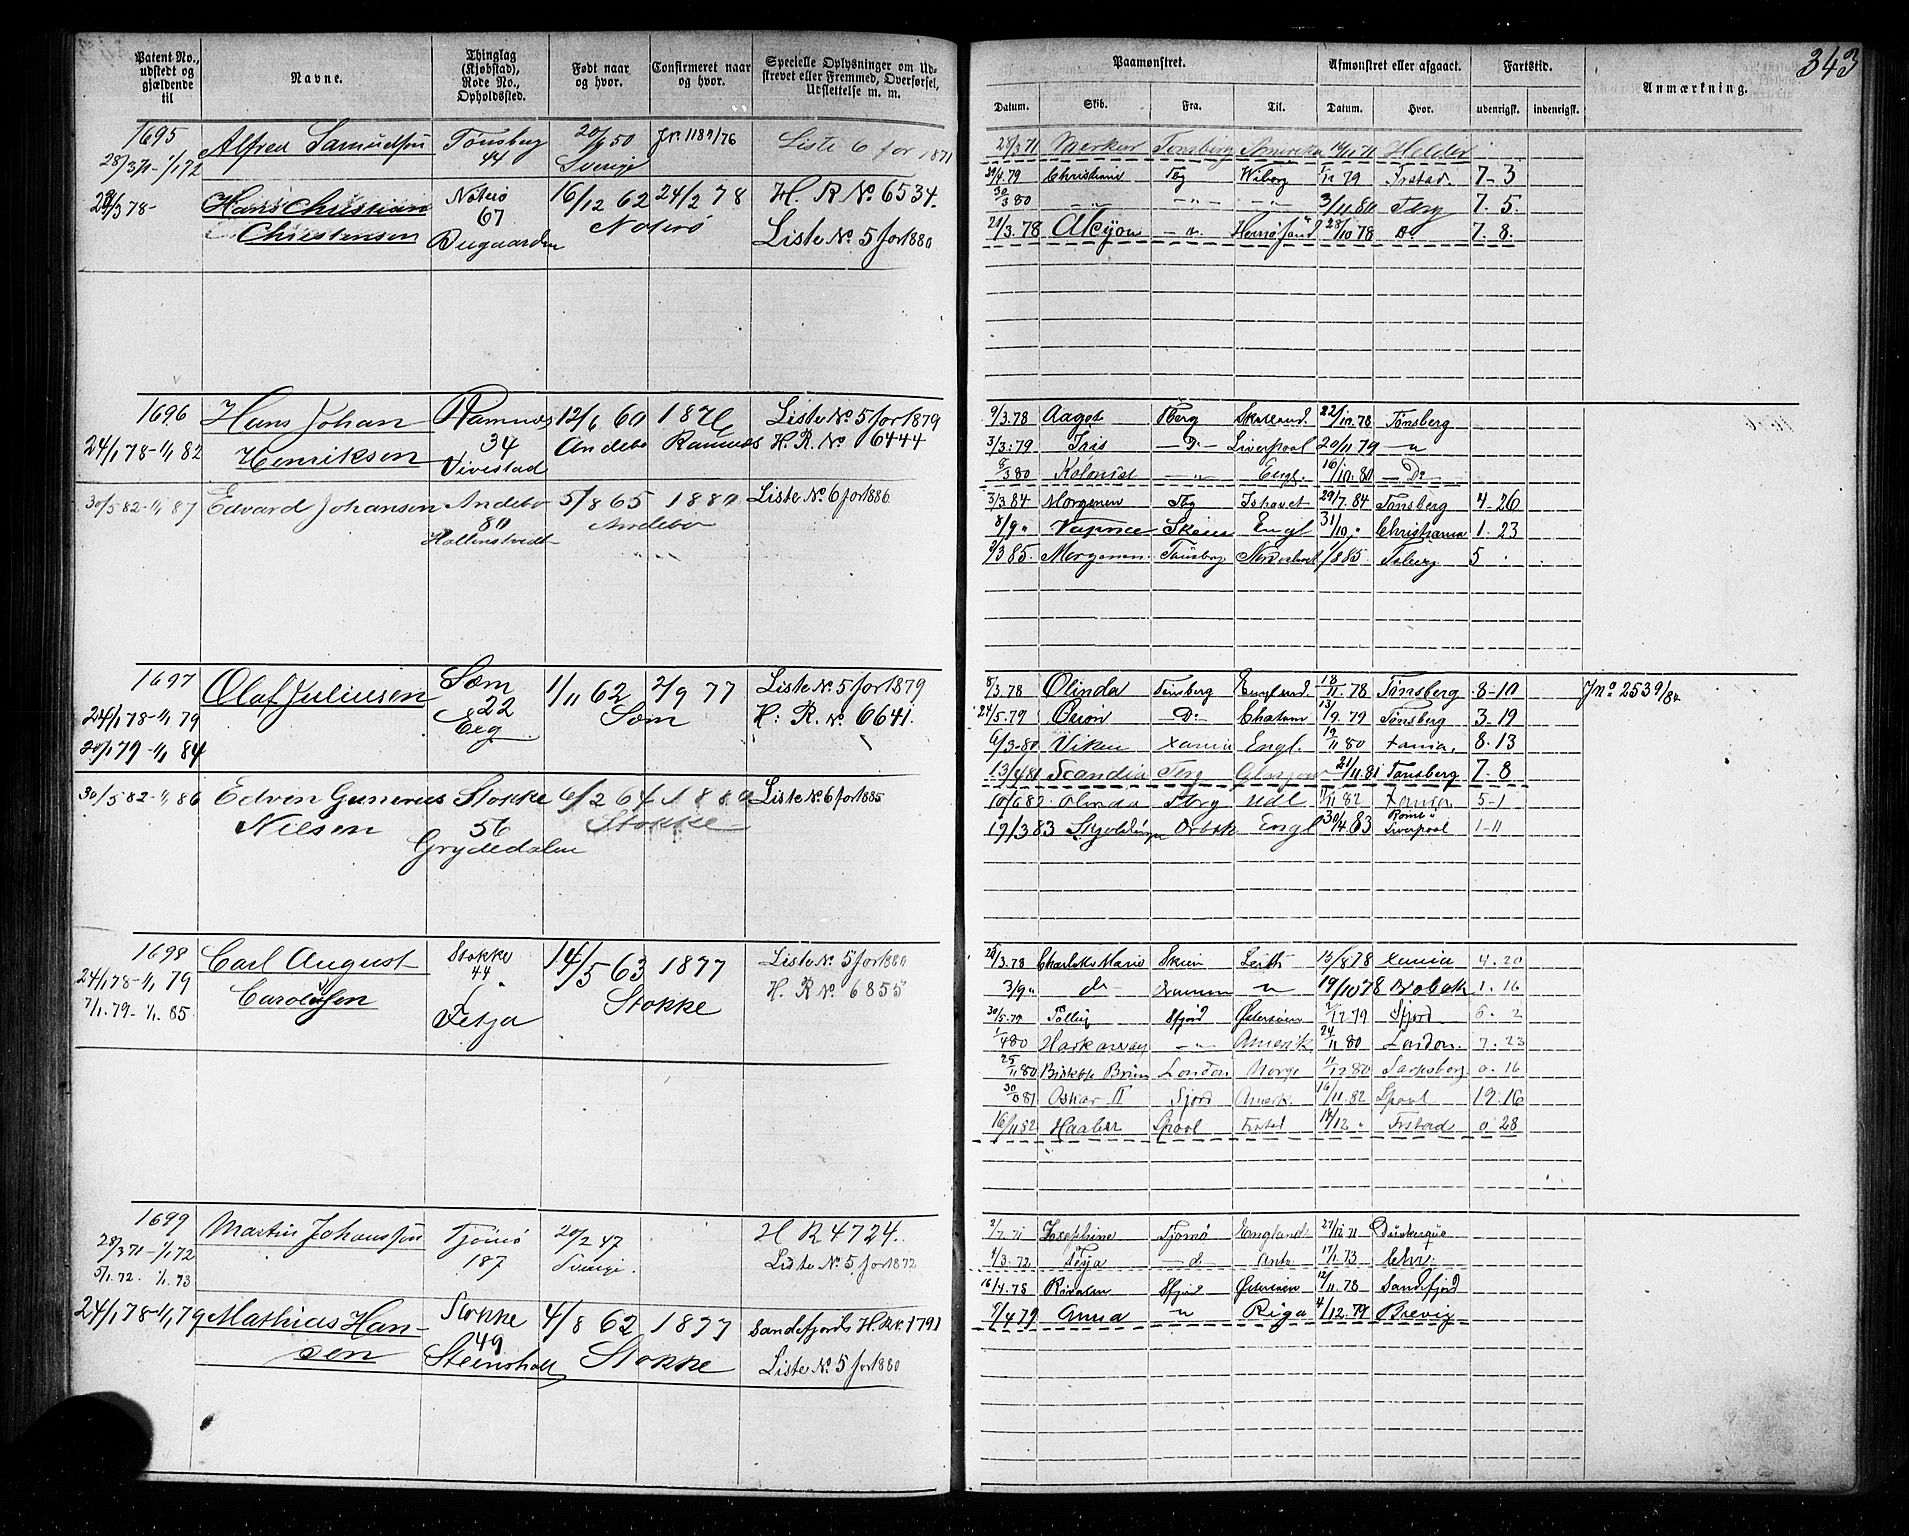 343
Patent No., udstedt og gjældende til
Navne.
Thinglag (Kjøbstad), Rode No., Opholdssted.
Født naar og hvor.
Confirmeret naar og hvor.
Specielle Oplysninger om Udskrevet eller Fremmed, Overførsel, Udslettelse m. m.
Paamønstret.
Afmønstret eller afgaaet.
Fartstid.
Anmærkning.
Datum. Skib. Fra. Til. Datum. Hvor. udenrigsk. indenrigsk.
1695 Alfred Samuelsen Tønsberg 20/9 50 Jr. 1189/76 Liste 6 for 1871
28/3 71-1/1 72 44 Sverige
28/3 71 Merkur Tønsberg Amerika 14/11 71 Helder
29/3 78- Hans Christian Nøterø 16/12 62 24/2 78 H. R No. 6534.
Christensen 67 Nøterø
Liste No. 5 for 1880
29/4.79 Christiane Tbg Wiborg 5/12 79 Frstad. 7-3
30/3 80 -"- -"- 3/11 80 Tbrg 7.5.
21/3.78 Alcyon -"- Hernøsand 28/10 78 7.8.
1696 Hans Johan Ramnæs 12/6 60 1876 Liste No. 5 for 1879
24/1 78-1/1 82 Henriksen 34 Andebo Ramnæs H. R. No. 6444
Vivestad
9/3.78 Aaget Tberg 22/10.78 Tønsberg
3/3.79 Iris -D- Liverpool 20/11 79 -"
8/3 80 Kolonist -"- Engl. 16/10.80 -Do
30/5 82-1/1 87 Edvard Johansen Andebo 5/8 65 1880 Liste No. 6 for 1886
80 Andebo
Hallenstvedt
3/3 84 Morgenen Tbg Ishavet 29/7.84 Tønsberg 4-26
8/9 " Engl 31/10 " Christiania 1.23
3/3 85 Morgenen Tønsberg Nordishavet 1/8 85 Tsberg 5
1697 Olaf Juliusen Sæm 1/11 62 2/9 77 Liste No. 5 for 1879
24/1 78-1/1 79 22 Sæm H. R. No. 6641.
20/1 79-1/1 84 Eeg
8/3.78 Olinda Tønsberg England 18/11 78 Tønsberg 8-10 Jno 2539/82
24/5.79 Orion Do Chatam 13/9.79 Tønsberg 3-19
6/3-80 Viken Xania Engl. 19/11 80 Xania. 8.13
13/4 81 Scandia Tbrg Glasgow 21/11.81 Tønsberg 7-8
30/5 82-1/1 86 Edvin Gunerius Stokke 6/2 64 1880 Liste No. 6 for 1885
Nielsen 56 Stokke
Grydedalen
10/6 82 Olinda Tbrg Udl 11/11 82 Xania 5-1
19/3 83 Skjoldungen Engl 30/4 83 Liverpool 1-11
1698 Carl August Stokke 14/5 63 1877 Liste No. 5 for 1880
24/1 78-1/1 79 Carolusen 44 Stokke H. R No. 6855
7/1.79-1/1.85 Fetja
25/3.78 Charlotte Marie Skien Leith 13/8 78 Xania 4.20
3/9 " do " 19/10 78 Drobak 1.16
30/5.79 Sfjord Østersøen 2/12 79 Sfjord 6.2
1/4 80 -"- Amerik 24/11 80 London. 7.23
25/11 80 London Norge 11/12 80 Sarpsborg 0.16
Oskar II Sfjord Amerk. 16/11.82 Lpool 19.16
16/11 82 Haabet Lpool Frstad 14/12 " Frstad 0 28
1699 Martin Johanssen Tjømø 20/2 47 H R 4724.
28/3 71-1/1 72 187 Sverige. Liste No. 5 for 1872
5/1.72. 1/1.73
2/7.71 Josephine Tjømø England 27/12 71 Dünkerque
4/3.72 Freja -d 17/1.73
24/1 78-1/1 79 Mathias Han- Stokke 4/8 62 1877 Sandefjords H. R. 1791
sen 49 Stokke Liste No. 5 for 1880
Steinsholt
16/4.78 Sfjord Østersøen 12/11.78 Sandefjord
9/4 79 Anna " Riga 4/12.79 Brevig